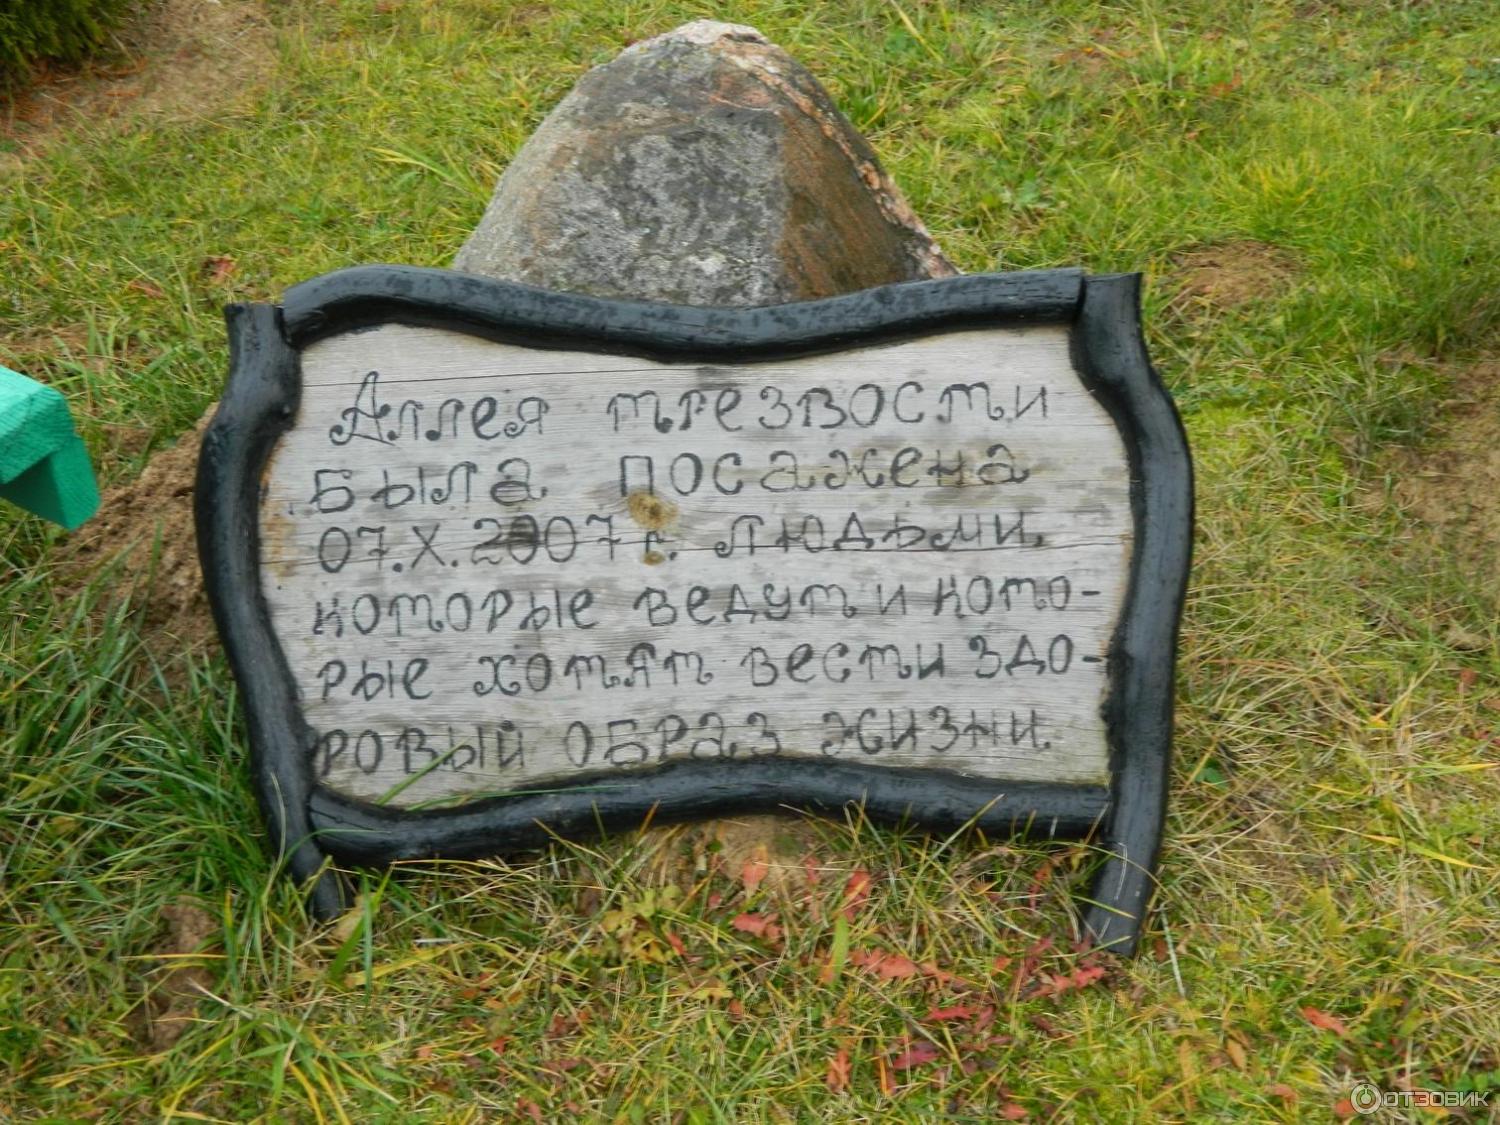 Аллея трезвости
была посажена
07.X.2007 г. людьми,
которые ведут и кото-
рые хотят вести здо-
ровый образ жизни.
ОТЗОВИК